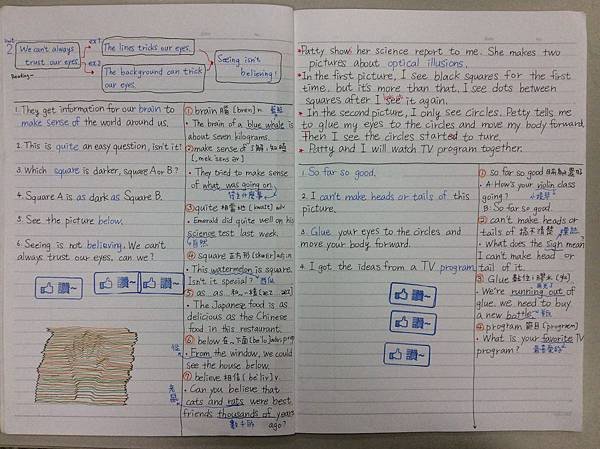 Unit
2
We can't always
trust our eyes.
Reading~
ex1
The lines tricks our eyes.
ex2
The background can trick
our eyes.
Seeing isn't
believing!
1. They get information for our brain to
make sense of the world around us.
2. This is quite an easy question, isn't it!
3. Which square is darker, square A or B?
4. Square A is as dark as Square B.
5. See the picture below.
6. Seeing is not believing. We can't
always trust our eyes, can we?
讚~
讚~
讚~
① brain 腦 [bren] n
藍鯨
• The brain of a blue whale is
about seven kilograms.
② make sense of 了解,知曉
• They tried to make sense
of what was going on.
③ quite 相當地 [kwaɪt] adv
• Emerald did quite well on his
science test last week.
自然
④ square 正方形 [skwɛr] adj./n
• This watermelon is square.
Isn't it special?
西瓜
⑤ as...as 和...一樣 [æz æz]
• The Japanese food is as
delicious as the Chinese
food in this restaurant.
⑥ below 在~下面 [bə'lo] adv. prep
從
• From the window, we could
see the house below.
⑦ believe 相信 [bɪ'liv] v.
• Can you believe that
老鼠
cats and rats were best
friends thousands of years
數千的
ago?
• Patty show her science report to me. She makes two
pictures about optical illusions.
• In the first picture, I see black squares for the first
time. but it's more than that. I see dots between
squares after I see it again.
• In the second picture, I only see circles. Petty tells me
to glue my eyes to the circles and move my body forward.
Then I see the circles started to turn.
• Patty and I will watch TV program together.
1. So far so good.
2. I can't make heads or tails of this
picture.
3. Glue your eyes to the circles and
move your body forward.
4. I got the ideas from a TV program.
讚~
讚~
讚~
① so far so good 目前為止還好
• A: How's your violin class
going?
小提琴
B: So far so good.
② can't make heads or
tails of 搞不清楚
• What does the sign mean?
I can't make head or
tail of it.
③ Glue 黏住;膠水 [glu]
• We're running out of
glue. we need to buy
a new bottle.
④ program 節目 [program]
• What is your favorite TV
program?
最喜愛的